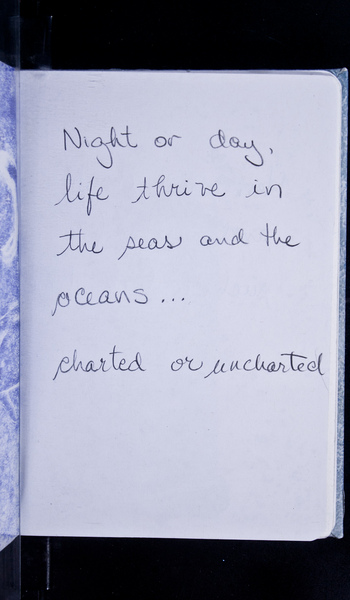 Night or day,
life thrive in
the seas and the
oceans...
charted or uncharted